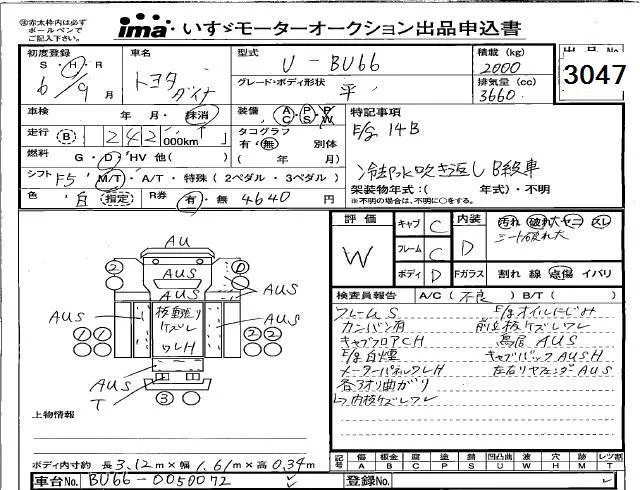 ㊟赤太枠内は必ず
ボールペンで
ご記入下さい。
ima・いすゞモーターオークション出品申込書
初度登録
S・H・R
6/9月
車名
トヨタ
ダイナ
型式
U-BU66
グレード・ボディ形状
平
積載 (kg)
2000
排気量 (cc)
3660
出品No.
3047
車検
年 月・抹消
装備
A/C・P/S・P/W
特記事項
E/g 14B
冷却水吹き返し B級車
走行
B 242,000km
タコグラフ
有・無 別体
( 年 月)
燃料
G・D・HV 他( )
シフト
F5 M/T・A/T・特殊(2ペダル・3ペダル)
架装物年式:( 年式)・不明
※不明の場合は、不明に○をする。
色
白 指定
R券
有・無 4640 円
評価
W
キャブ C
フレーム C
ボディ D
内装
D
汚れ 破れ大 ヤニ スレ
シート破れ大
Fガラス 割れ 線 点傷 イバリ
検査員報告 A/C(不良) B/T( )
フレームS
カンバン有
キャブフロアCH
E/g白煙
メーターパネルワレH
各3オリ曲がり
レワ内板ケズレワレ
E/gオイルにじみ
前立板ケズレワレ
鳥居AUS
キャブバックAUSH
左右リヤフェンダAUS
AU
2
AUS
AUS
AUS
AUS
AUS
1 1
2 2
板重走り
ケズレ
ワレH
AUS
T
3
上物情報
記号
傷 A
板金 B
腐 C
塗 P
錆 S
凹凸曲 U
波 W
穴 H
跡 M
レツ割 T
ボディ内寸約 長3.12m×幅1.61m×高0.34m
車台No. BU66-0050072
登録No.